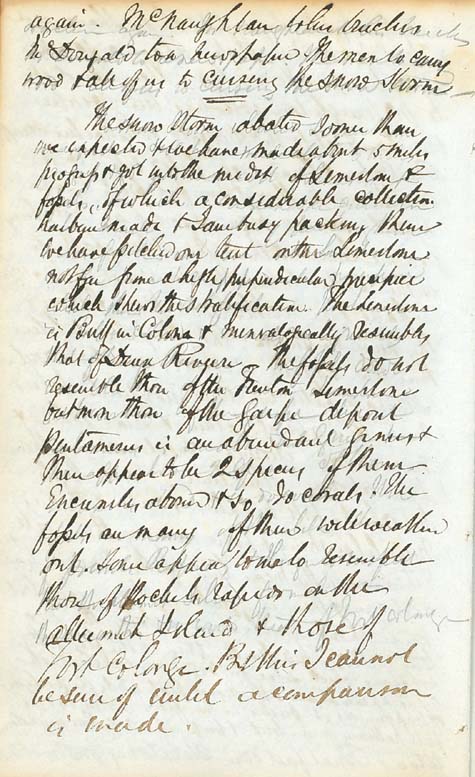 again. McNaughtan to his
McDonald to a newspaper The men to carry
wood & all of us to cursing the snow storm
The snow storm abated sooner than
we expected & we have made about 5 miles
progress & got into the midst of Limestone &
fossils, of which a considerable collection
has been made & I am busy packing them
We have pitched our tent on the Limestone
not far from a high perpendicular precipice
which shews the stratification. The Limestone
is Buff in Colour & mineralogically resembles
that of Deux Rivieres The fossils do not
resemble those of the Trenton Limestone
but more those of the Gaspe deposit
Pentamerus is an abundant genus &
there appear to be 2 species of them
Encrinites abound & so do corals. The
fossils are many of them well weathered
out. Some appear to me to resemble
those of Rochels Rapids on the
Allumette Island & those of
Fort Colonge. But this I cannot
be sure of until a comparison
is made.